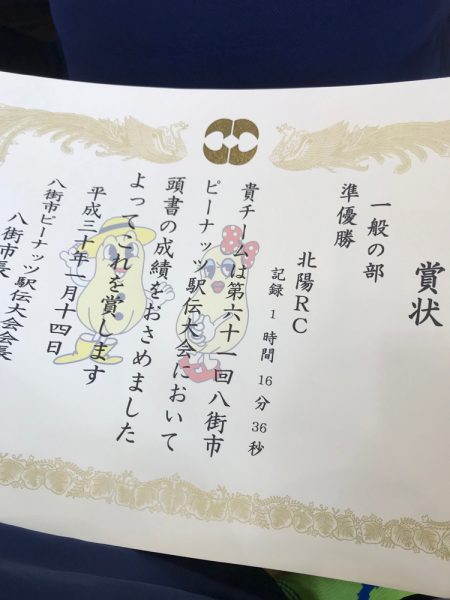 賞状
一般の部
準優勝
北陽RC
記録 1時間16分36秒
貴チームは第六十一回八街市
ピーナッツ駅伝大会において
頭書の成績をおさめました
よってこれを賞します
平成三十年一月十四日
八街市ピーナッツ駅伝大会会長
八街市長